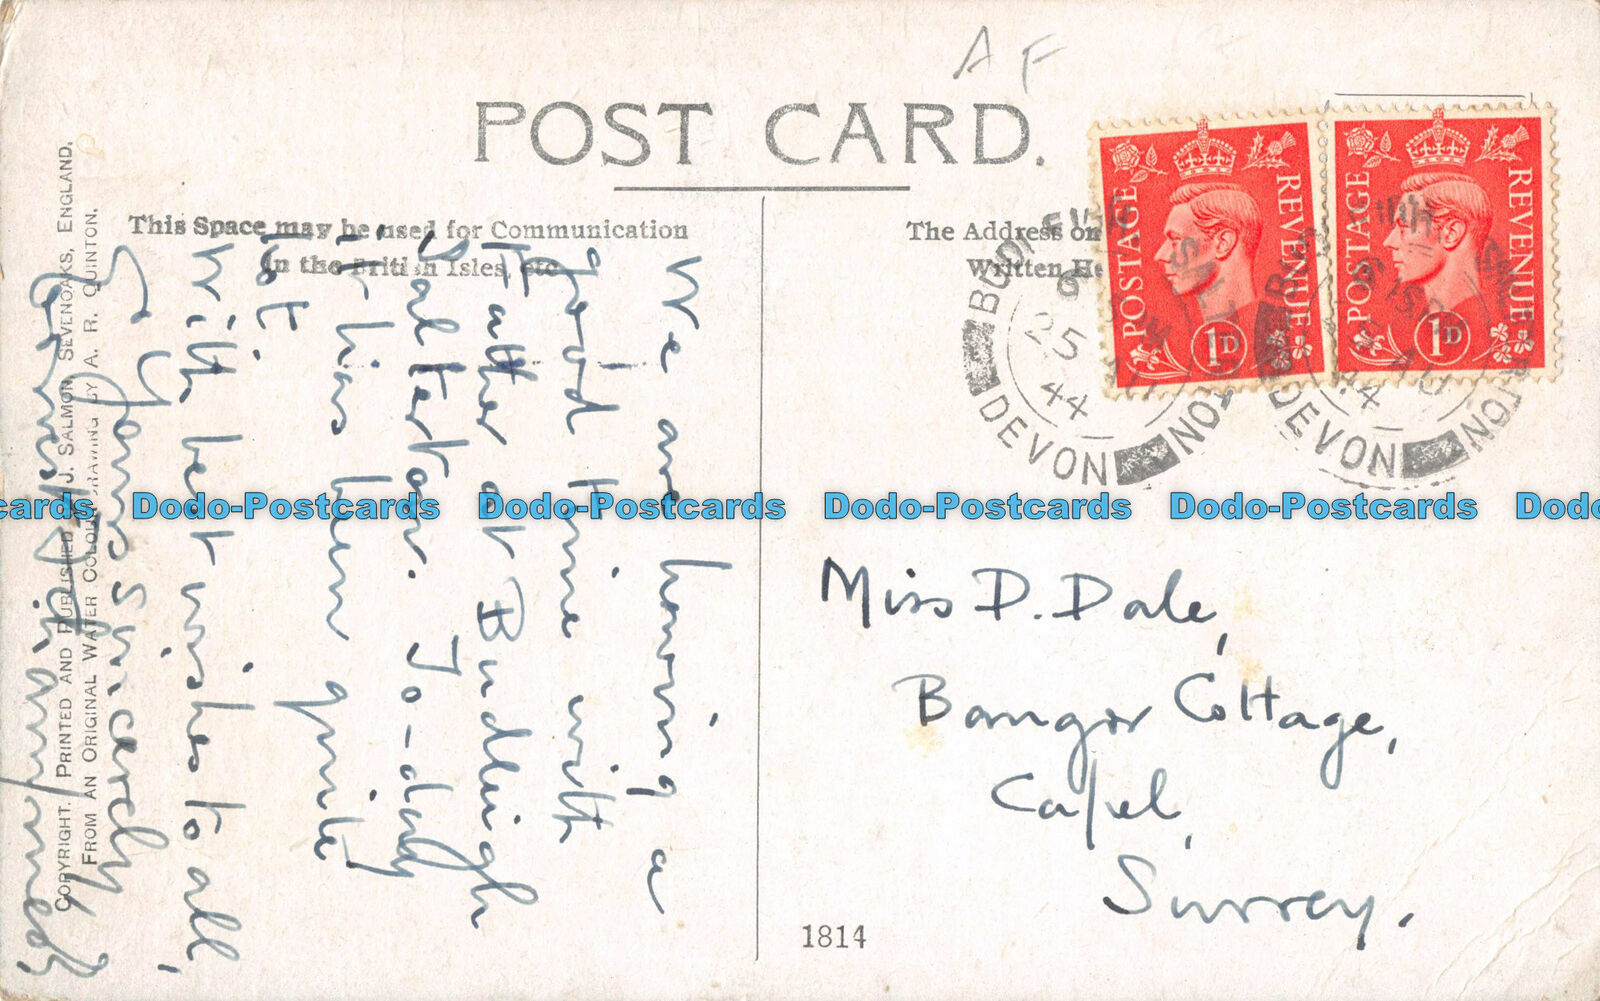 A F
POST CARD.
This Space may be used for Communication
in the British Isles, etc
The Address on
Written He
POSTAGE REVENUE
1D
POSTAGE REVENUE
1D
BUDLEIGH SALTERTON
6
25
44
DEVON
BUD
6 15PM
AU
44
SALTERTON
DEVON
We are having a
good time with
Father at Budleigh
Salterton. To-day
it has been quite
hot
With best wishes to all,
Yours Sincerely
COPYRIGHT. PRINTED AND PUBLISHED J. SALMON, SEVENOAKS, ENGLAND.
FROM AN ORIGINAL WATER COLOUR DRAWING BY A. R. QUINTON.
Miss D. Dale,
Bangor Cottage,
Capel,
Surrey.
1814
cards Dodo-Postcards Dodo-Postcards Dodo-Postcards Dodo-Postcards Dod